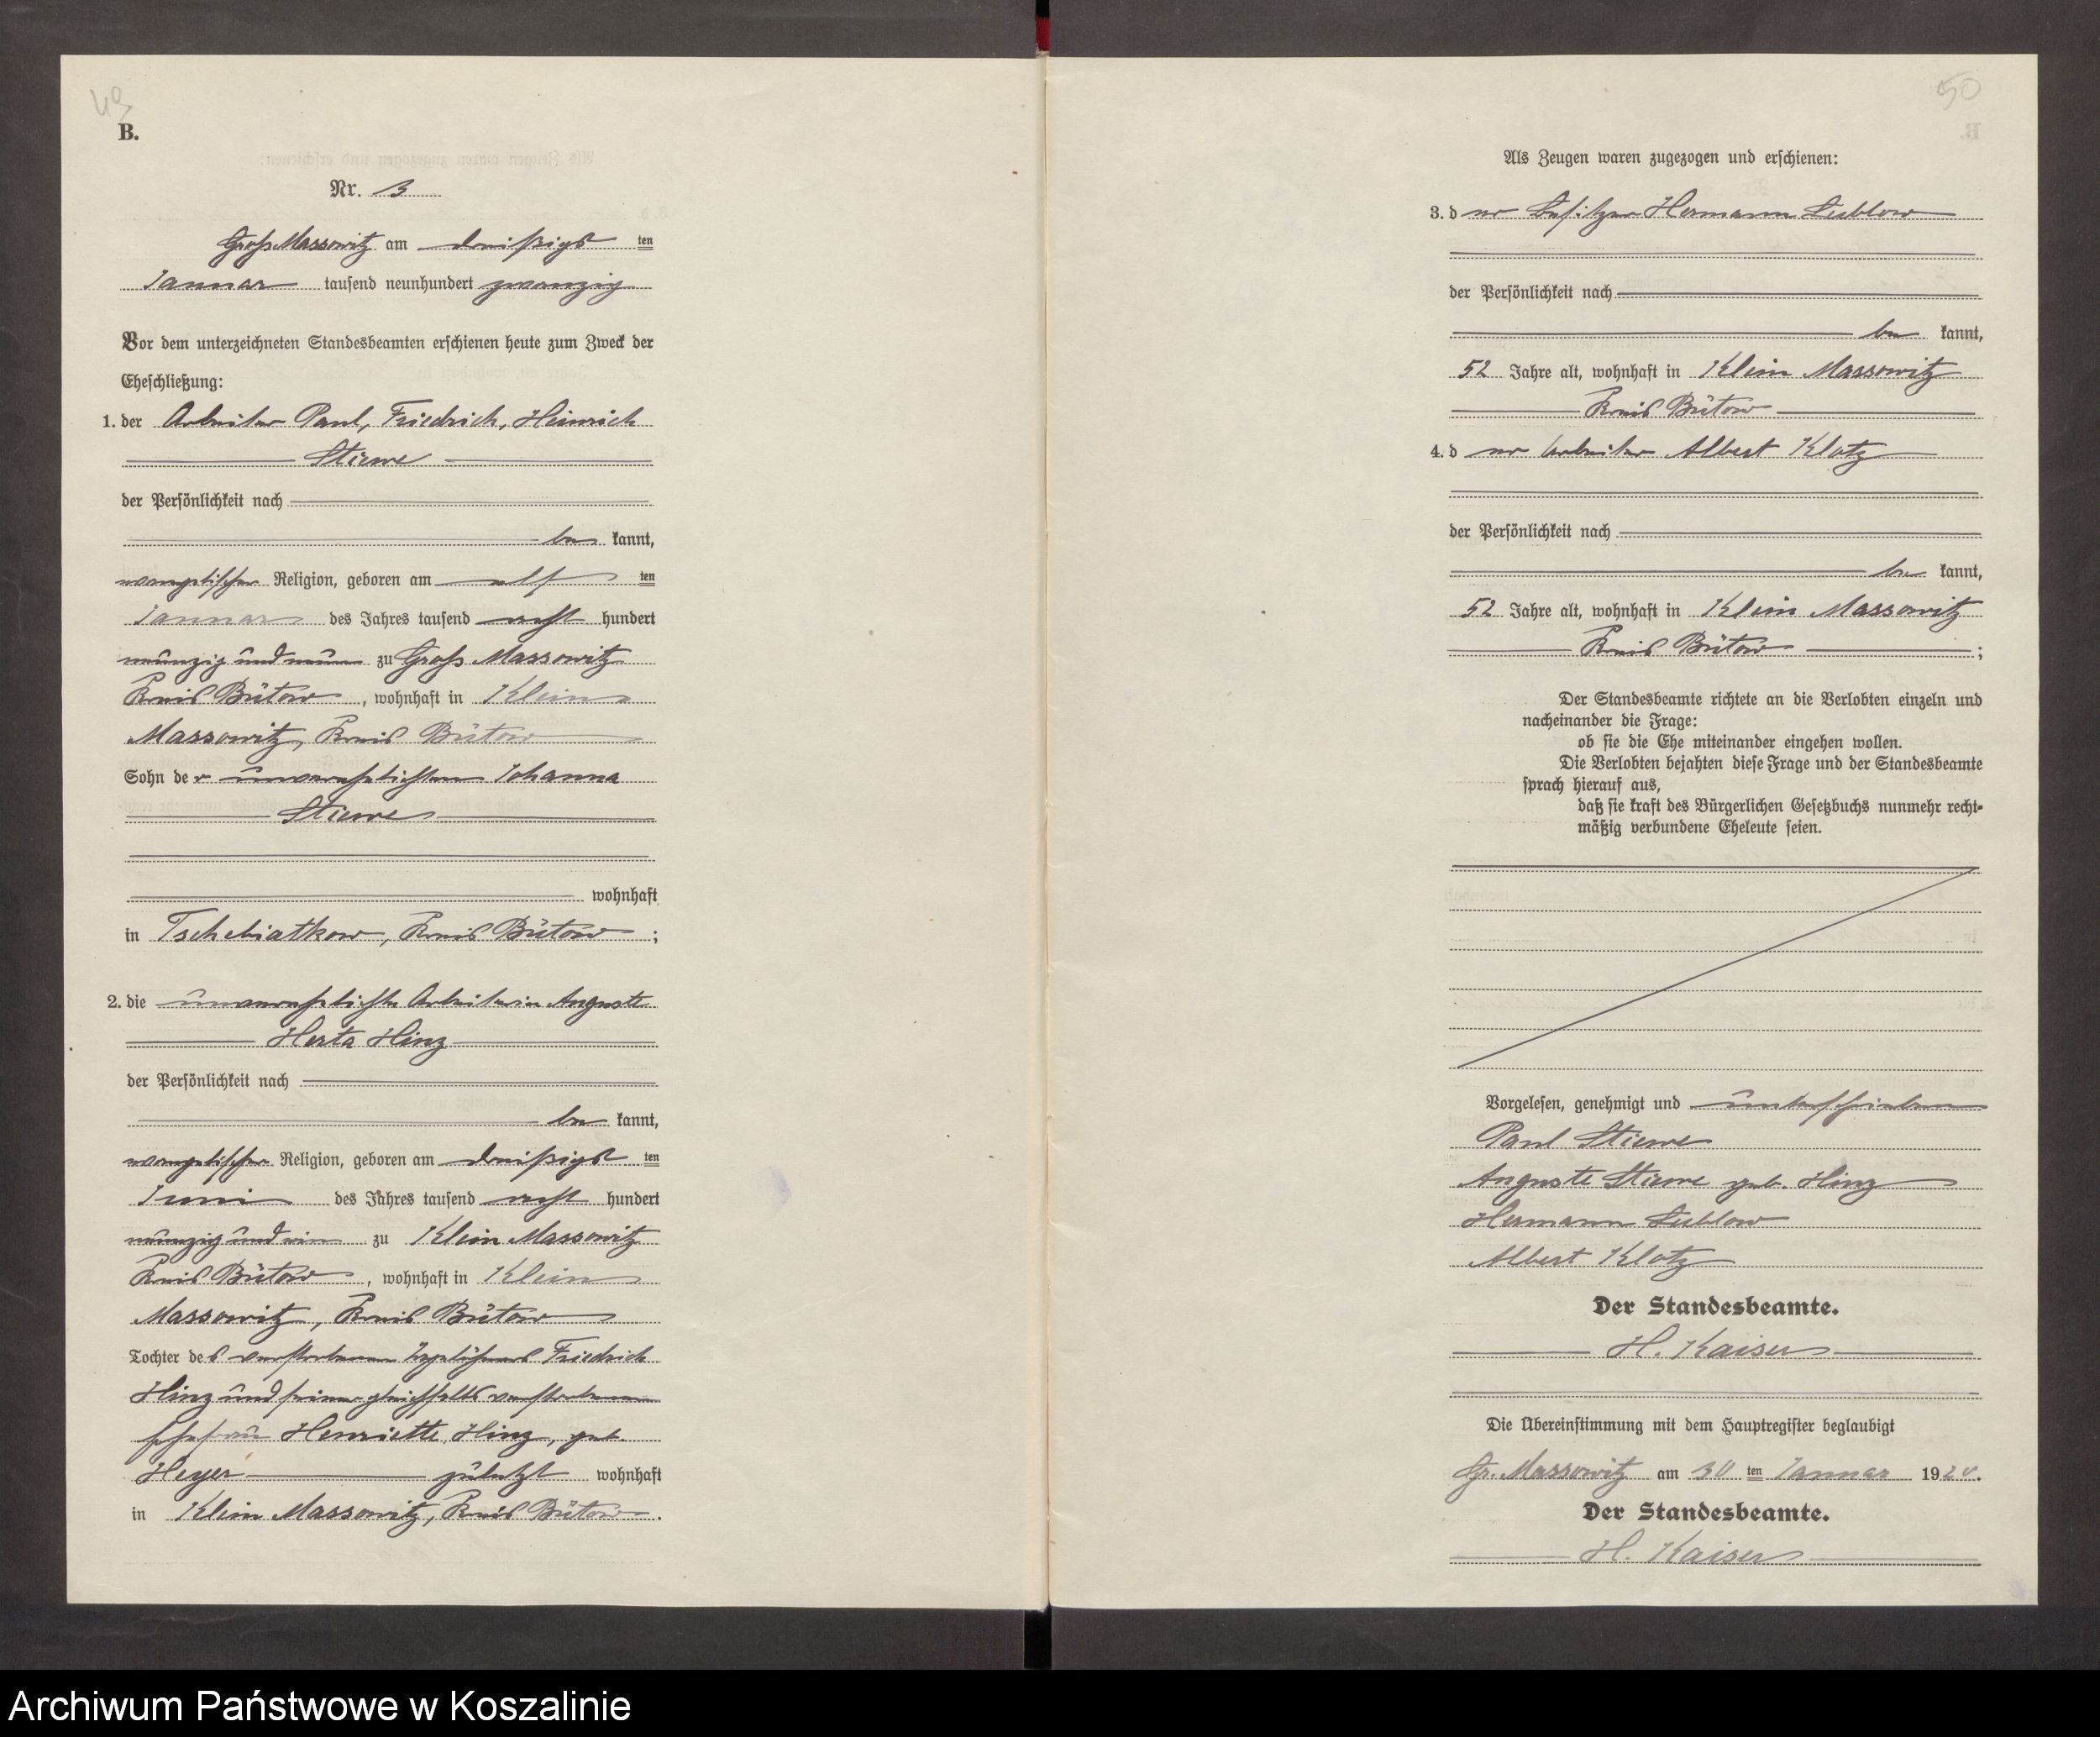 49
B.
Nr. 3
Groß Massowitz am dreißigst ten
Januar tausend neunhundert zwanzig
Vor dem unterzeichneten Standesbeamten erschienen heute zum Zweck der
Eheschließung:
1. der Arbeiter Paul, Friedrich, Heinrich
Stiewe
der Persönlichkeit nach
be kannt,
evangelischer Religion, geboren am elf ten
Januar des Jahres tausend acht hundert
neunzig und neun zu Groß Massowitz
Kreis Bütow, wohnhaft in Klein
Massowitz, Kreis Bütow
Sohn der unverehelichten Johanna
Stiewe
wohnhaft
in Tschebiatkow, Kreis Bütow;
2. die unverehelichte Arbeiterin Auguste
Herta Hinz
der Persönlichkeit nach
be kannt,
evangelischer Religion, geboren am dreißigst ten
Juni des Jahres tausend acht hundert
neunzig und ein zu Klein Massowitz
Kreis Bütow, wohnhaft in Klein
Massowitz, Kreis Bütow
Tochter des verstorbenen Tagelöhners Friedrich
Hinz und seiner gleichfalls verstorbenen
Ehefrau Henriette, Hinz, geb.
Heyer zuletzt wohnhaft
in Klein Massowitz, Kreis Bütow.
50
Als Zeugen waren zugezogen und erschienen:
3. der Besitzer Hermann Lublow
der Persönlichkeit nach
be kannt,
52 Jahre alt, wohnhaft in Klein Massowitz
Kreis Bütow
4. der Arbeiter Albert Klotz
der Persönlichkeit nach
be kannt,
52 Jahre alt, wohnhaft in Klein Massowitz
Kreis Bütow;
Der Standesbeamte richtete an die Verlobten einzeln und
nacheinander die Frage:
ob sie die Ehe miteinander eingehen wollen.
Die Verlobten bejahten diese Frage und der Standesbeamte
sprach hierauf aus,
daß sie kraft des Bürgerlichen Gesetzbuchs nunmehr recht-
mäßig verbundene Eheleute seien.
Vorgelesen, genehmigt und unterschrieben
Paul Stiewe
Auguste Stiewe geb. Hinz
Hermann Lublow
Albert Klotz
Der Standesbeamte.
H. Kaiser
Die Übereinstimmung mit dem Hauptregister beglaubigt
Gr. Massowitz am 30 ten Januar 1920.
Der Standesbeamte.
H. Kaiser
Archiwum Państwowe w Koszalinie